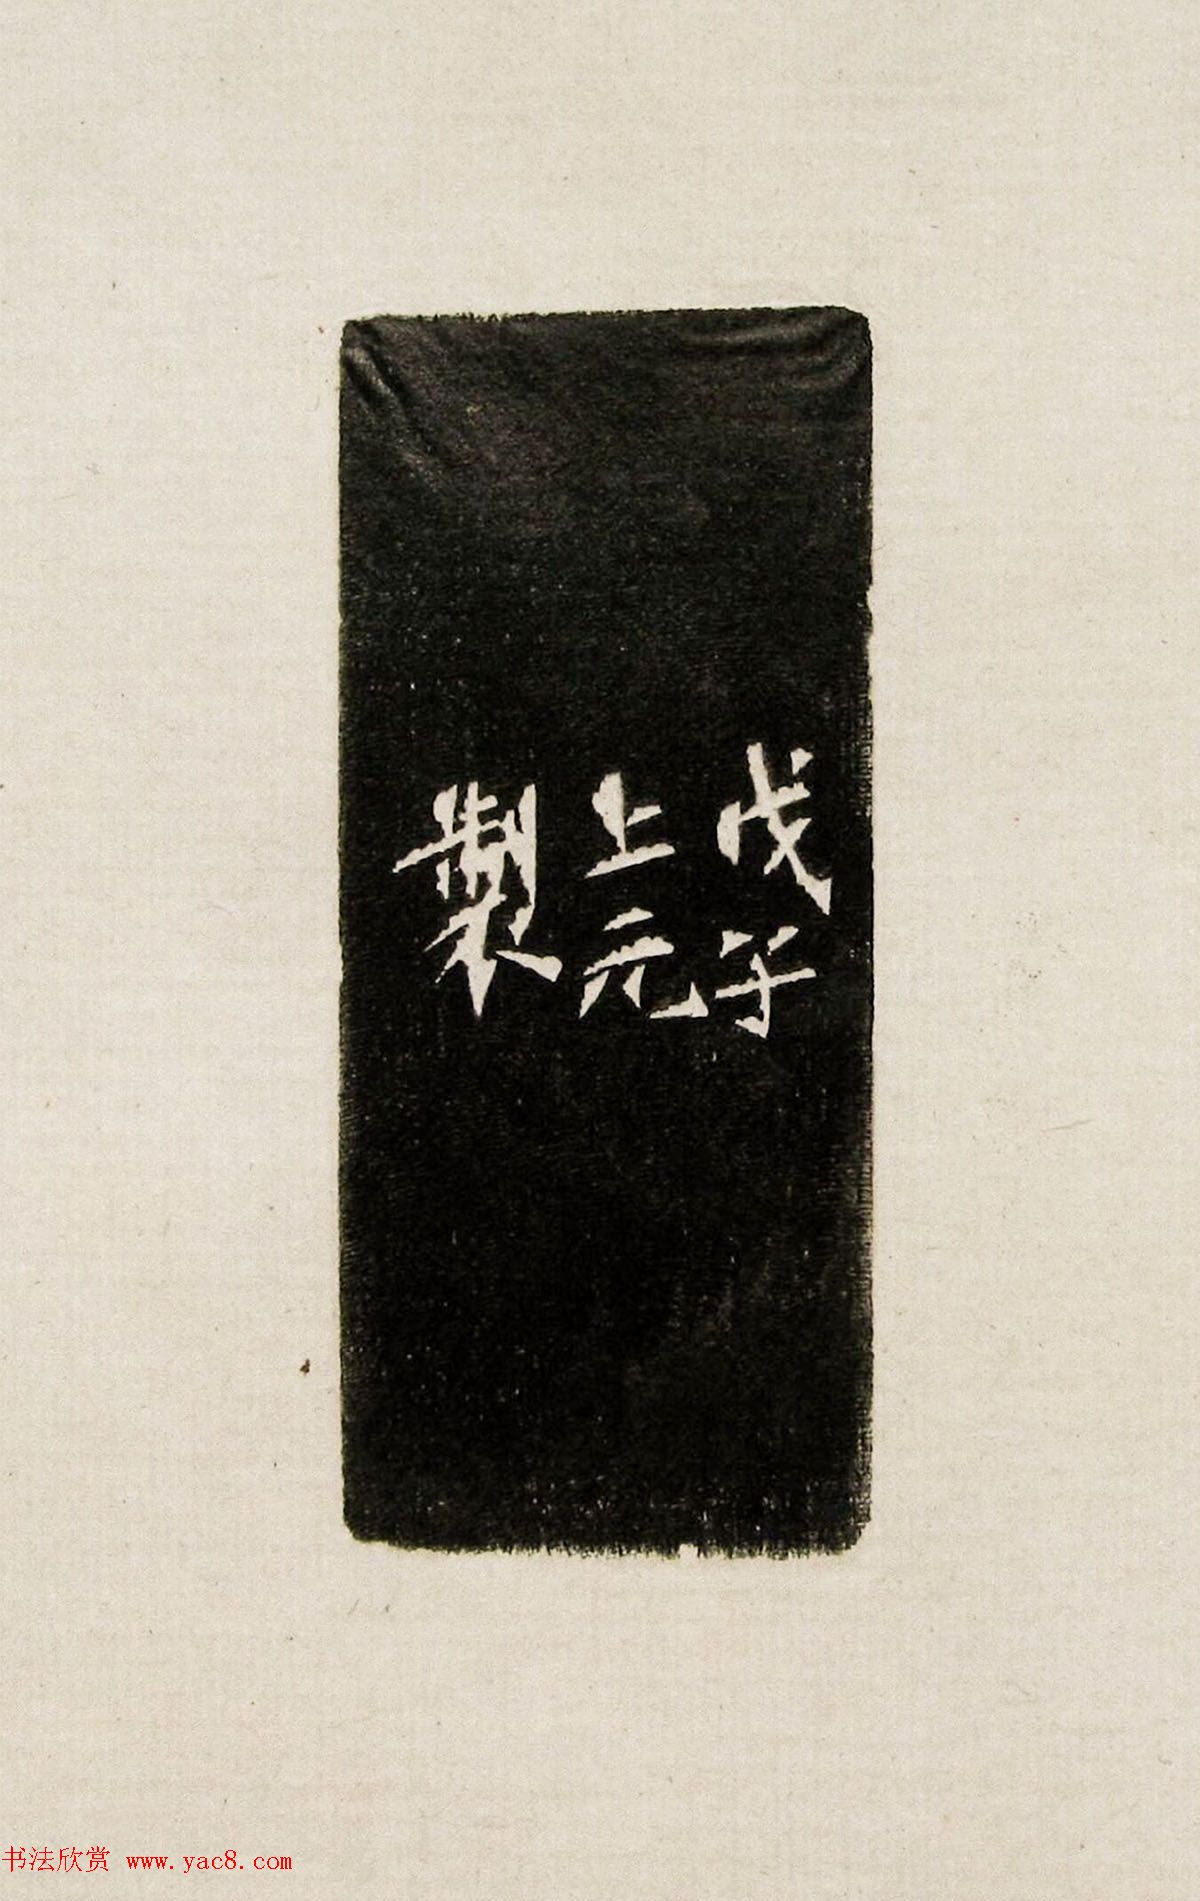 戊子
上元
製
书法欣赏 www.yac8.com